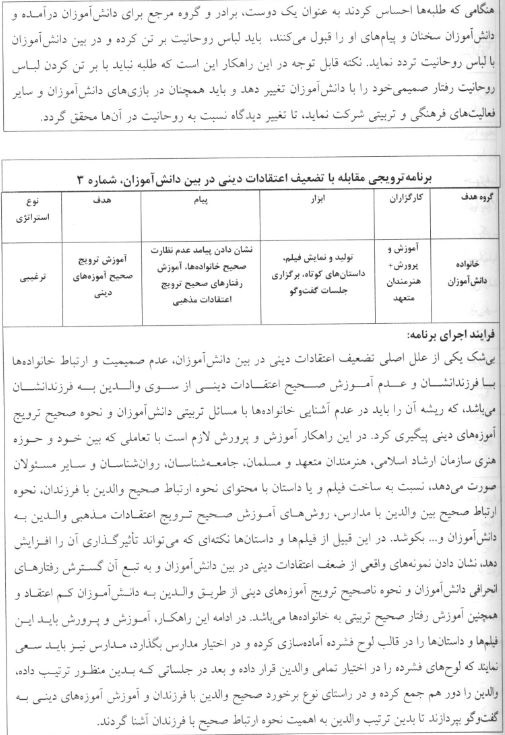 هنگامی که طلبه‌ها احساس کردند به عنوان یک دوست، برادر و گروه مرجع برای دانش‌آموزان درآمده و
دانش‌آموزان سخنان و پیام‌های او را قبول می‌کنند، باید لباس روحانیت بر تن کرده و در بین دانش‌آموزان
با لباس روحانیت تردد نماید. نکته قابل توجه در این راهکار این است که طلبه نباید با بر تن کردن لباس
روحانیت رفتار صمیمی‌خود را با دانش‌آموزان تغییر دهد و باید همچنان در بازی‌های دانش‌آموزان و سایر
فعالیت‌های فرهنگی و تربیتی شرکت نماید، تا تغییر دیدگاه نسبت به روحانیت در آن‌ها محقق گردد.
برنامه ترویجی مقابله با تضعیف اعتقادات دینی در بین دانش‌آموزان، شماره ۳
گروه هدف کارگزاران ابزار پیام هدف نوع
استراتژی
خانواده
دانش‌آموزان
آموزش و
پرورش+
هنرمندان
متعهد
تولید و نمایش فیلم،
داستان‌های کوتاه، برگزاری
جلسات گفت‌وگو
نشان دادن پیامد عدم نظارت
صحیح خانواده‌ها، آموزش
رفتارهای صحیح ترویج
اعتقادات مذهبی
آموزش ترویج
صحیح آموزه‌های
دینی
ترغیبی
فرایند اجرای برنامه:
بی‌شک یکی از علل اصلی تضعیف اعتقادات دینی در بین دانش‌آموزان، عدم صمیمیت و ارتباط خانواده‌ها
با فرزندانشان و عدم آموزش صحیح اعتقادات دینی از سوی والدین به فرزندانشان
می‌باشد، که ریشه آن را باید در عدم آشنایی خانواده‌ها با مسائل تربیتی دانش‌آموزان و نحوه صحیح ترویج
آموزه‌های دینی پیگیری کرد. در این راهکار آموزش و پرورش لازم است با تعاملی که بین خود و حوزه
هنری سازمان ارشاد اسلامی، هنرمندان متعهد و مسلمان، جامعه‌شناسان، روان‌شناسان و سایر مسئولان
صورت می‌دهد، نسبت به ساخت فیلم و یا داستان با محتوای نحوه ارتباط صحیح والدین با فرزندان، نحوه
ارتباط صحیح بین والدین با مدارس، روش‌های آموزش صحیح ترویج اعتقادات مذهبی والدین به
دانش‌آموزان و... بکوشد. در این قبیل از فیلم‌ها و داستان‌ها نکته‌ای که می‌تواند تأثیرگذاری آن را افزایش
دهد، نشان دادن نمونه‌های واقعی از ضعف اعتقادات دینی در بین دانش‌آموزان و به تبع آن گسترش رفتارهای
انحرافی دانش‌آموزان و نحوه ناصحیح ترویج آموزه‌های دینی از طریق والدین به دانش‌آموزان کم اعتقاد و
همچنین آموزش رفتار صحیح تربیتی به خانواده‌ها می‌باشد. در ادامه این راهکار، آموزش و پرورش باید این
فیلم‌ها و داستان‌ها را در قالب لوح فشرده آماده‌سازی کرده و در اختیار مدارس بگذارد، مدارس نیز باید سعی
نمایند که لوح‌های فشرده را در اختیار تمامی والدین قرار داده و بعد در جلساتی که بدین منظور ترتیب داده،
والدین را دور هم جمع کرده و در راستای نوع برخورد صحیح والدین با فرزندان و آموزش آموزه‌های دینی به
گفت‌وگو بپردازند تا بدین ترتیب والدین به اهمیت نحوه ارتباط صحیح با فرزندان آشنا گردند.